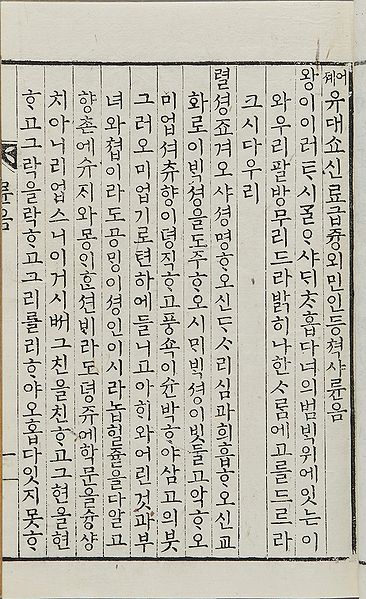 어졔유대쇼신료급즁외민인등쳑샤륜음
왕이이러ᄐᆞ시ᄀᆞᆯᄋᆞ샤ᄃᆡᄎᆞ홉다녀의범ᄇᆡᆨ위에잇ᄂᆞᆫ이
와우리팔방무리드라ᄇᆞᆰ히나한ᄉᆞᄅᆞᆷ에고를드르라
크시다우리
렬셩죠겨오샤셩명ᄒᆞ오신ᄃᆞᄉᆞ리심과희흡ᄒᆞ오신교
화로이ᄇᆡᆨ셩을도주ᄒᆞ오시ᄆᆡᄇᆡᆨ셩이빗둘고악ᄒᆞ오
미업셔츄향이뎡직ᄒᆞ고풍쇽이슌박ᄒᆞ야삼고의붓
그러오미업기로텬하에들니고아ᄒᆡ와어린것과부
녀와쳡이라도공ᄆᆡᆼ이셩인이시라놉힐쥴을다알고
향촌에슈지와몽인ᄒᆞᆫ션ᄇᆡ라도뎡쥬에학문을슝샹
치아니리업스니이거시버그친을친ᄒᆞ고그현을현
ᄒᆞ고그락을락ᄒᆞ고그리를리ᄒᆞ야오홉다잇지못ᄒᆞ
륜음
一